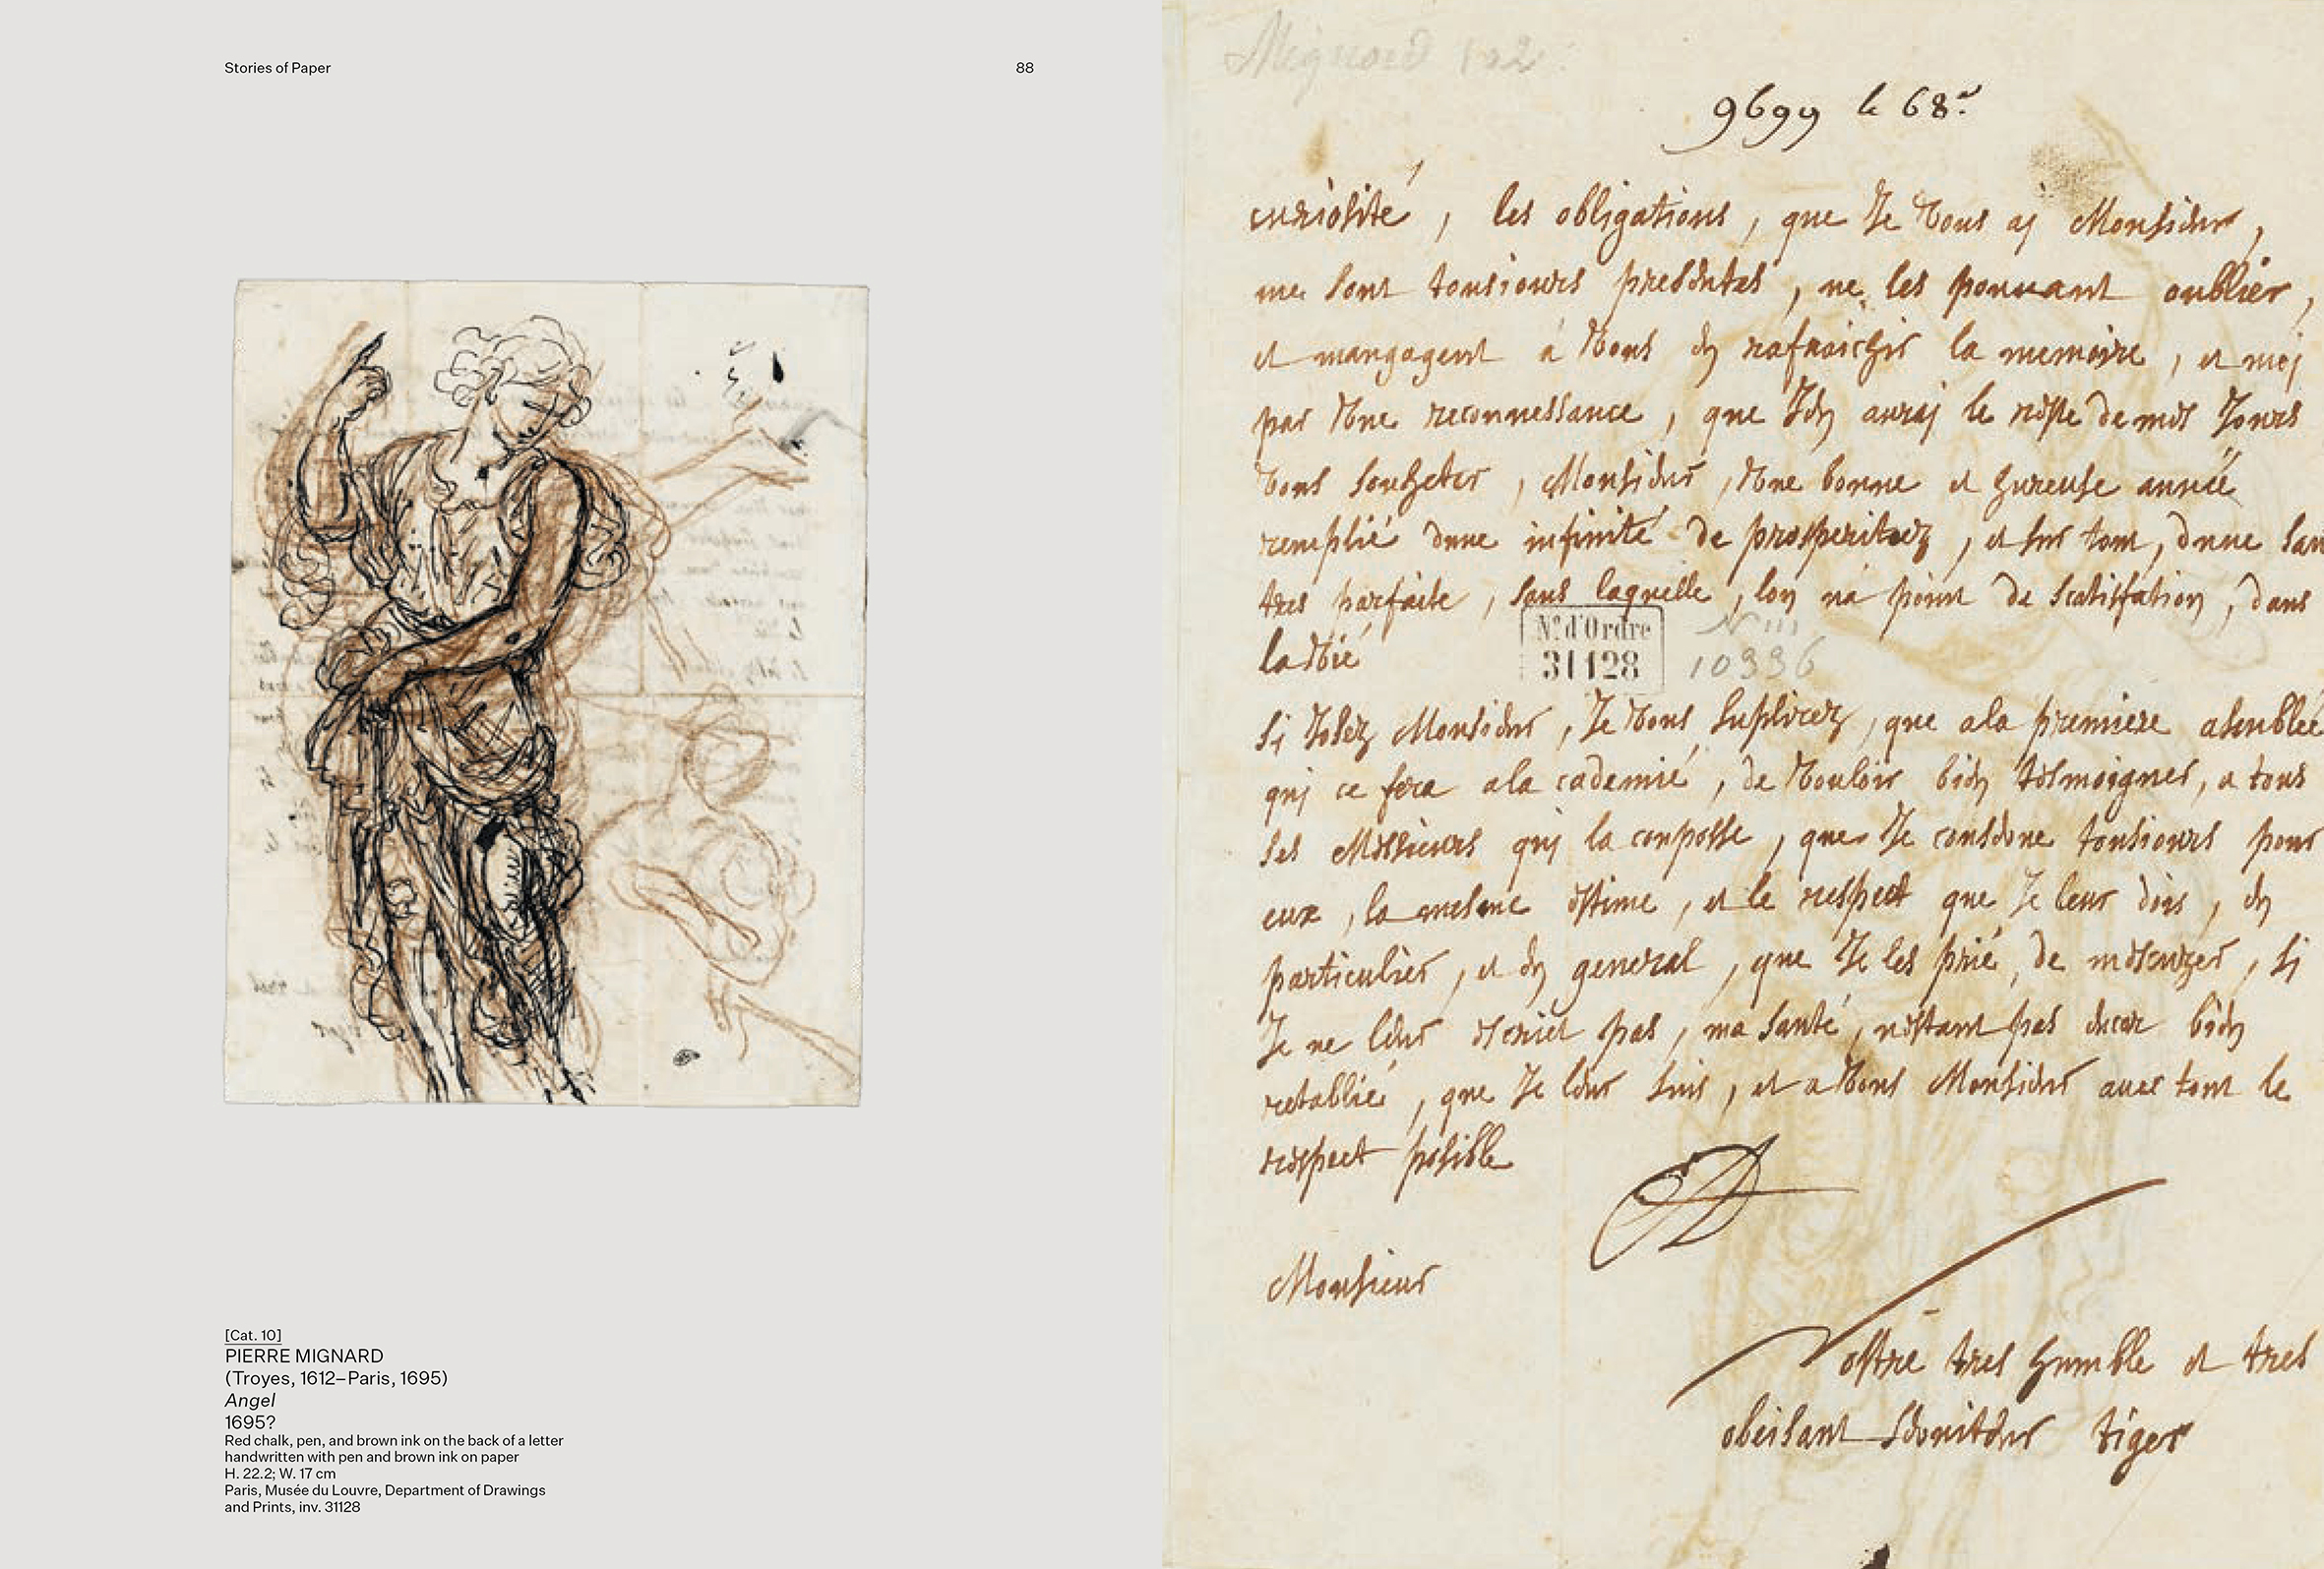 Stories of Paper
88
[Cat. 10]
PIERRE MIGNARD
(Troyes, 1612–Paris, 1695)
Angel
1695?
Red chalk, pen, and brown ink on the back of a letter
handwritten with pen and brown ink on paper
H. 22.2; W. 17 cm
Paris, Musée du Louvre, Department of Drawings
and Prints, inv. 31128
Mignard
9699 le 68e
curiosité, les obligations, que Je vous aj Monsieur,
me sont tousiours presentes, ne les pouuant oublier,
et mangagent a vous en rafraichir la memoire, et moj
par vne reconnessance, que Jen auraj le reste de mes Jours
vous souheter, Monsieur, vne bonne et hureuse année
remplié dune infinité de prosperitez, et sur tout, dune san
tres parfaite, sans laquelle, lon na point de scatisfation, dans
la vié
N° d'Ordre
31128
10336
si Josez Monsieur, Je vous suplirez, que ala premiere asemblee
quj ce fera ala cademié, de vouloir bien tesmoigner, a tous
ses Messieurs quj la conposse, que Je conserve tousiours pour
eux, la mesme estime, et le respect que Je leur dois, en
particulier, et en general, que Je les prié, de mescuzer, si
Je ne leur escriet pas, ma santé, nestant pas encor bien
retablié, que Je leur suis, et a vous Monsieur auec tout le
respect posible
Monsieur
Vostre tres humble et tres
obeisant seruiteur tiger